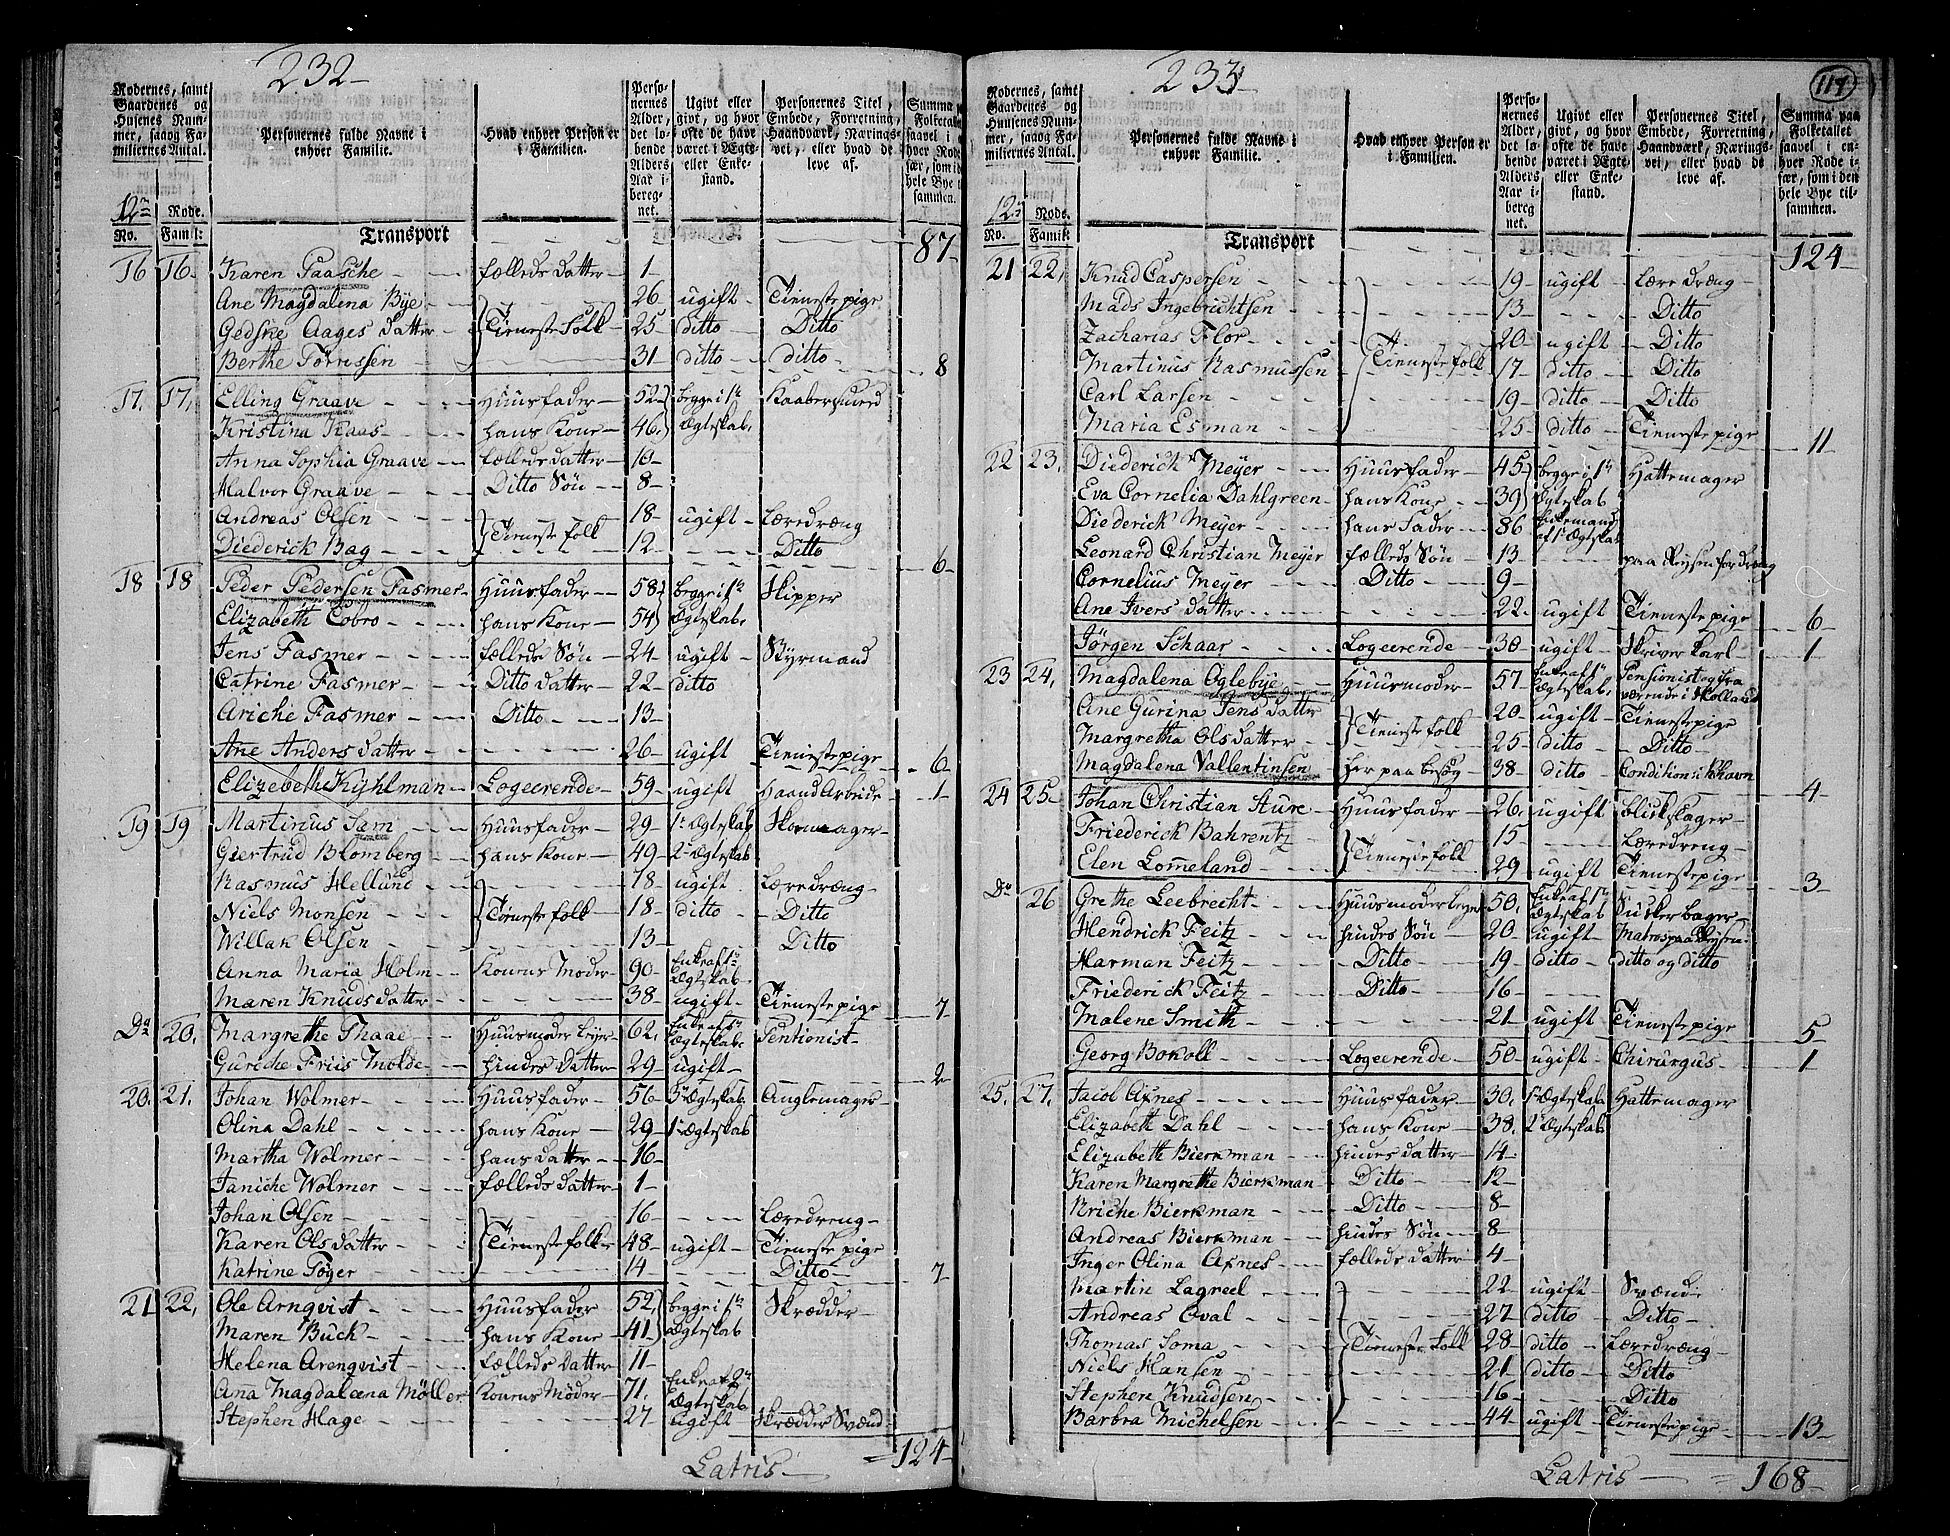 232
Rodernes, samt Gaardenes og Husenes Nummer, saavog Familiernes Antal.
Personernes fulde Navne i enhver Familie.
Hvad enhver Person er i Familien.
Personernes Alder, det lobende Alders Aar iberegnet.
Ugivt eller givt, og hvor ofte de have været i Ægte- eller Enkestand.
Personernes Titel, Embede, Forretning, Haandværk, Næringsvei, eller hvad de leve af.
12te Rode.
No. Famil:
Transport 87
16 16 Karen Paasche fælleds datter 1
Ane Magdalena Bye Tienestefolk 26 ugift Tienestepige
Gedske Aages datter 25 ditto Ditto
Berthe Törrissen 31 ditto ditto 8
17. 17. Elling Graave Huusfader 52 begge i 1te Kaabersmed
Kristina Kaas hans Kone 46 Ægteskab
Anna Sophia Graave fælleds datter 10
Halvor Graave Ditto Sön 8
Andreas Olsen Tienestefolk 18 ugift Læredræng
Diederich Bag 12 Ditto 6
18 18 Peder Pedersen Fasmer Huusfader 58 begge i 1te Skipper
Elizabeth Cobro hans Kone 54 Ægteskab
Jens Fasmer fælleds Sön 24 ugift Styrmand
Catrine Fasmer Ditto datter 22 ditto
Ariche Fasmer Ditto 13
Ane Anders datter 26 ugift Tienestepige 6
Elizebeth Kyhlman Logeerende 59 ugift Haand Arbeide 1
19 19 Martinus Sam Huusfader 29 1te Ægteskab Skomager
Giertrud Blomberg hans Kone 49 2det Ægteskab
Rasmus Hellund Tienestefolk 18 ugift Læredræng
Niels Monsen 18 ditto Ditto
Willak Olsen 13 Ditto
Anna Maria Holm Konens Moder 90 Enke af 1te Ægteskab
Maren Knuds datter 38 ugift Tienestepige 7
Do 20. Margrethe Thaae Huusmoder Leyer 62 Enke af 1te Ægteskab Pentionist
Gureche Friis Molde hindes Datter 29 ugift 2
20. 21. Johan Wolmer Huusfader 56 Ægteskab Anglemager
Olina Dahl hans Kone 29 1te Ægteskab
Martha Wolmer hans datter 16
Janiche Wolmer fælleds datter 1
Johan Olsen Tienestefolk 16 Læredreng
Karen Ols datter 48 ugift Tieneste pige
Katrine Töger 14 Ditto 7
21 22. Ole Arnqvist Huusfader 52 begge i 1te Skrædder
Maren Buck hans Kone 41 Ægteskab
Helena Arenqvist fælleds Datter 11
Ana Magdalæna Möller Konens Moder 71. Enke af 2det Ægteskab
Stephen Hage 27 ugift Skrædder Svænd
Latris 124
233
119
Rodernes, samt Gaardenes og Husenes Nummer, saavog Familiernes Antal.
Personernes fulde Navne i enhver Familie.
Hvad enhver Person er i Familien.
Personernes Alder, det lobende Alders Aar iberegnet.
Ugivt eller givt, og hvor ofte de have været i Ægte- eller Enkestand.
Personernes Titel, Embede, Forretning, Haandværk, Næringsvei, eller hvad de leve af.
Summa paa Folketallet saavel i enhver Rode især, som i den hele Bye tilsammen.
12te Rode.
No. Famil:
Transport 124
21 22. Knud Caspersen 19 ugift Læredræng
Mads Ingebrichtsen 13 Ditto
Zacharias Flor 20 ugift Ditto
Martinus Rasmussen Tienestefolk 17 ditto Ditto
Carl Larsen 19 ditto Ditto
Maria Esman 25 ditto Tienestepige 11
22 23. Diederich Meyer Huusfader 45 begge i 1te Hattemager
Eva Cornelia Dahlgreen hans Kone 39 Ægteskab
Diederich Meyer hans Fader 86 Enkemand af 1te Ægteskab
Leonard Christian Meyer fælleds Sön 13 paa Reysen for dræng
Cornelius Meyer Ditto 9
Ane Ivers datter 22 ugift Tienestepige 6
Jörgen Schaar Logeerende 30 ugift Skriver Karl 1
23 24. Magdalena Oglebye Huusmoder 57 Enke af 1te Ægteskab Pensionist og fraværende i Skotland
Ane Gurina Jens datter Tienestefolk 20 ugift Tienestepige
Margretha Olsdatter 25 ditto Ditto
Magdalena Vallentinsen her paa besög 38 ditto Condition i Khavn 4
24 25 Johan Christian Sture Huusfader 26 ugift blikslager
Friederich Bahrentz Tienestefolk 15 Læredreng
Elen Lomeland 29 ugift Tienestepige 3
Do 26 Grethe Leebrecht Huusmoder Leyer 50 Enke af 1te Ægteskab Sukkerbager
Hendrick Feitz hindes Sön 20 ugift Matros paa Reysen
Harman Feitz Ditto 19 ditto ditto og ditto
Friederich Feitz Ditto 16
Malene Smith 21 ugift Tienestepige 5
Georg Bokoll Logeerende 50 ugift Chirurgus 1
25. 27. Jacob Axnes Huusfader 30. 1te Ægteskab Hattemager
Elizabeth Dahl hans Kone 38. 2det Ægteskab
Elizabeth Bierkman hindes datter 14
Karen Margrethe Bierkman Ditto 12
Nriche Bierkman Ditto 8
Andreas Bierkman hindes Sön 8
Inger Olina Axnes fælleds datter 4
Martin Lagreel 22 ugift Svænd
Andreas Oval 27 ditto Ditto
Thomas Soma Tieneste Folk 28 ditto Læredræng
Niels Hansen 21 ditto Ditto
Stephen Knudsen 16 Ditto
Barbra Michelsen 44 ugift Tienestepige 13
Latris 168